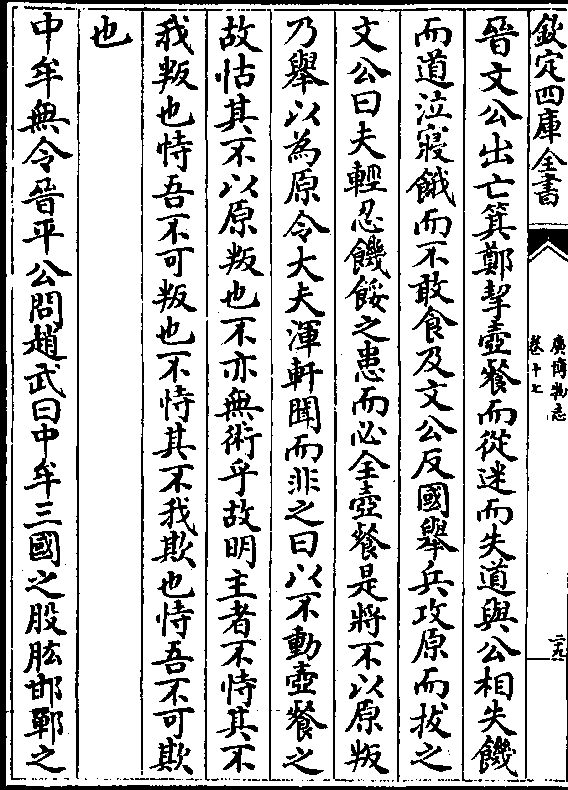 欽定四庫全書
廣博物志
卷十七
晉文公出亡箕鄭挈壺餐而從迷而失道與公相失饑
而道泣寢餓而不敢食及文公反國舉兵攻原而拔之
文公曰夫輕忍饑餒之患而必全壺餐是將不以原叛
乃舉以為原令大夫渾軒聞而非之曰以不動壺餐之
故怙其不以原叛也不亦無術乎故明主者不恃其不
我叛也恃吾不可叛也不恃其不我欺也恃吾不可欺
也
中牟無令晉平公問趙武曰中牟三國之股肱邯鄲之